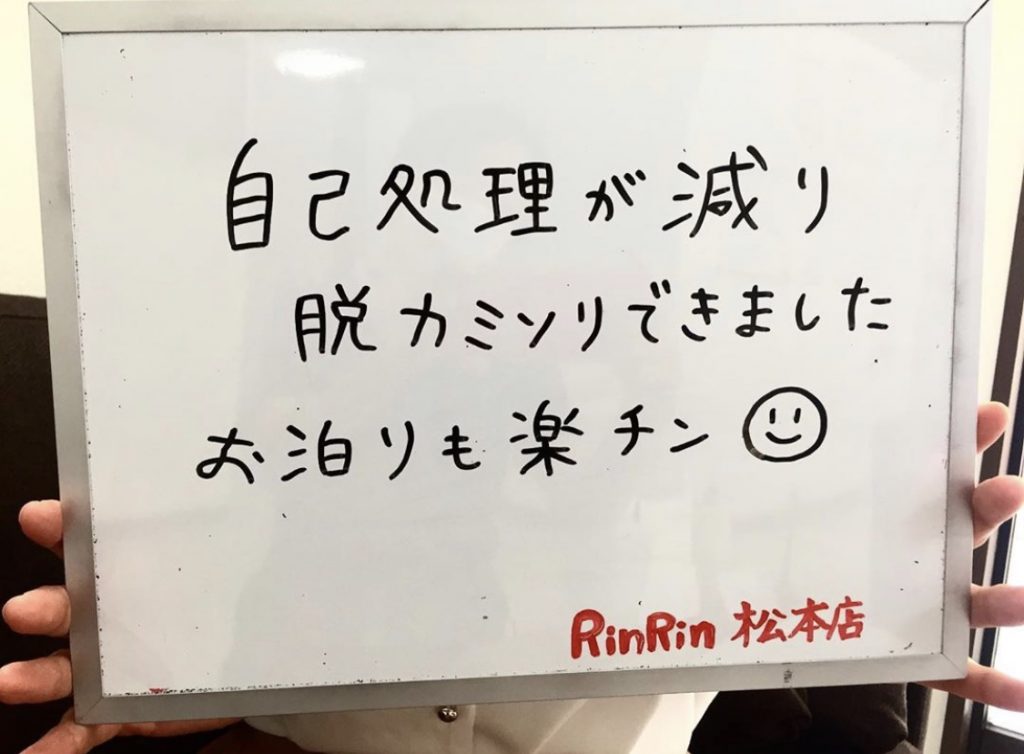 自己処理が減り
脱カミソリできました
お泊りも楽チン
RinRin 松本店